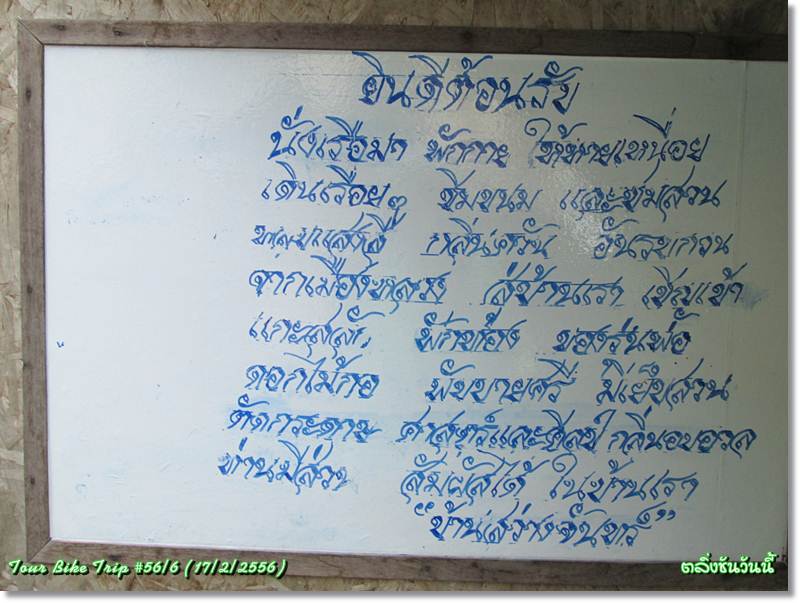 ยินดีต้อนรับ
นั่งเรือมา พักกาย ให้หายเหนื่อย
เดินเรื่อยๆ ชิมขนม และชมสวน
หลบแสงสี กลิ่นควัน อันรบกวน
จากเมืองหลวง สู่บ้านเรา เชิญเข้า
แกะสลัก พักห้อง ของรุ่นพ่อ
ดอกไม้กอ พับบายศรี มีเย็บสวน
ตัดกระดาษ ศาสตร์และศิลป์ กลิ่นอบอวล
ท่านมีส่วน สัมผัสได้ ในบ้านเรา
"บ้านสว่างจันทร์"
Tour Bike Trip #56/6 (17/2/2556)
ตลิ่งชันวันนี้